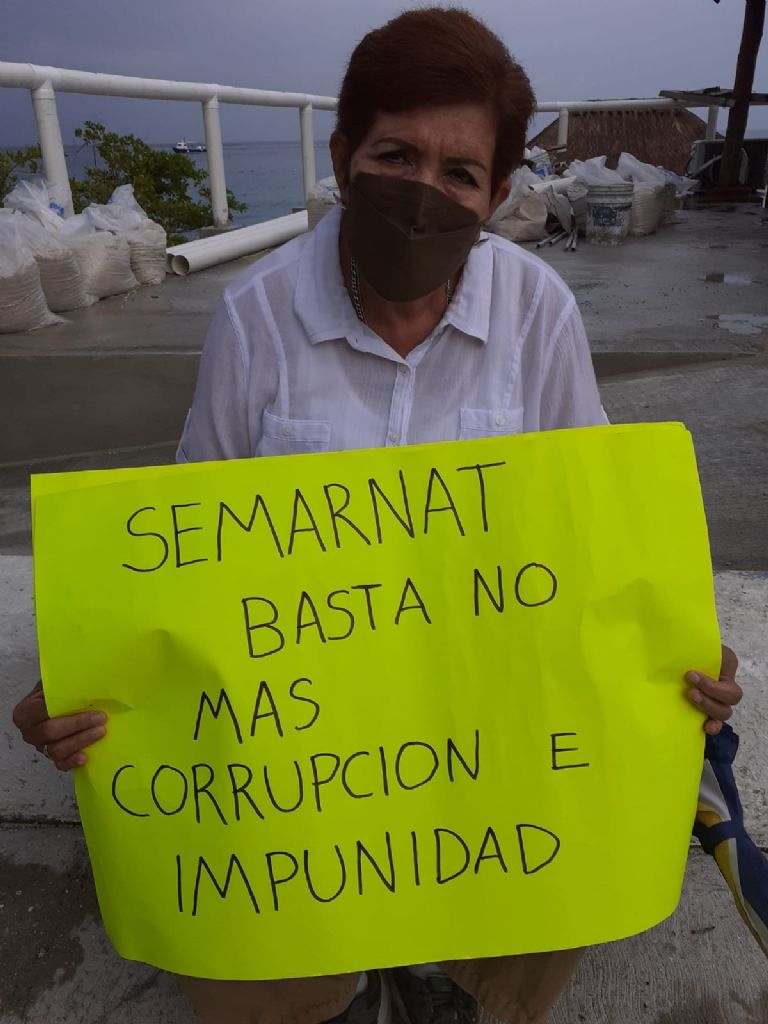 SEMARNAT
BASTA NO
MAS
CORRUPCION E
IMPUNIDAD